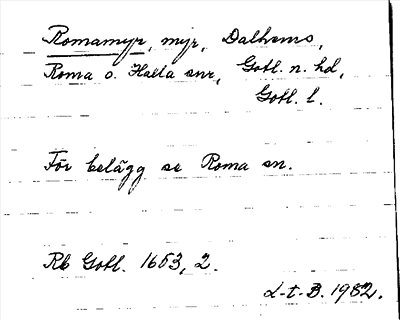 Romamyr, myr, Dalhems,
Roma o. Halla snr, Gotl. n. hd,
Gotl. l.
För belägg se Roma sn.
Rb Gotl. 1653, 2.
L-t-B. 1982.